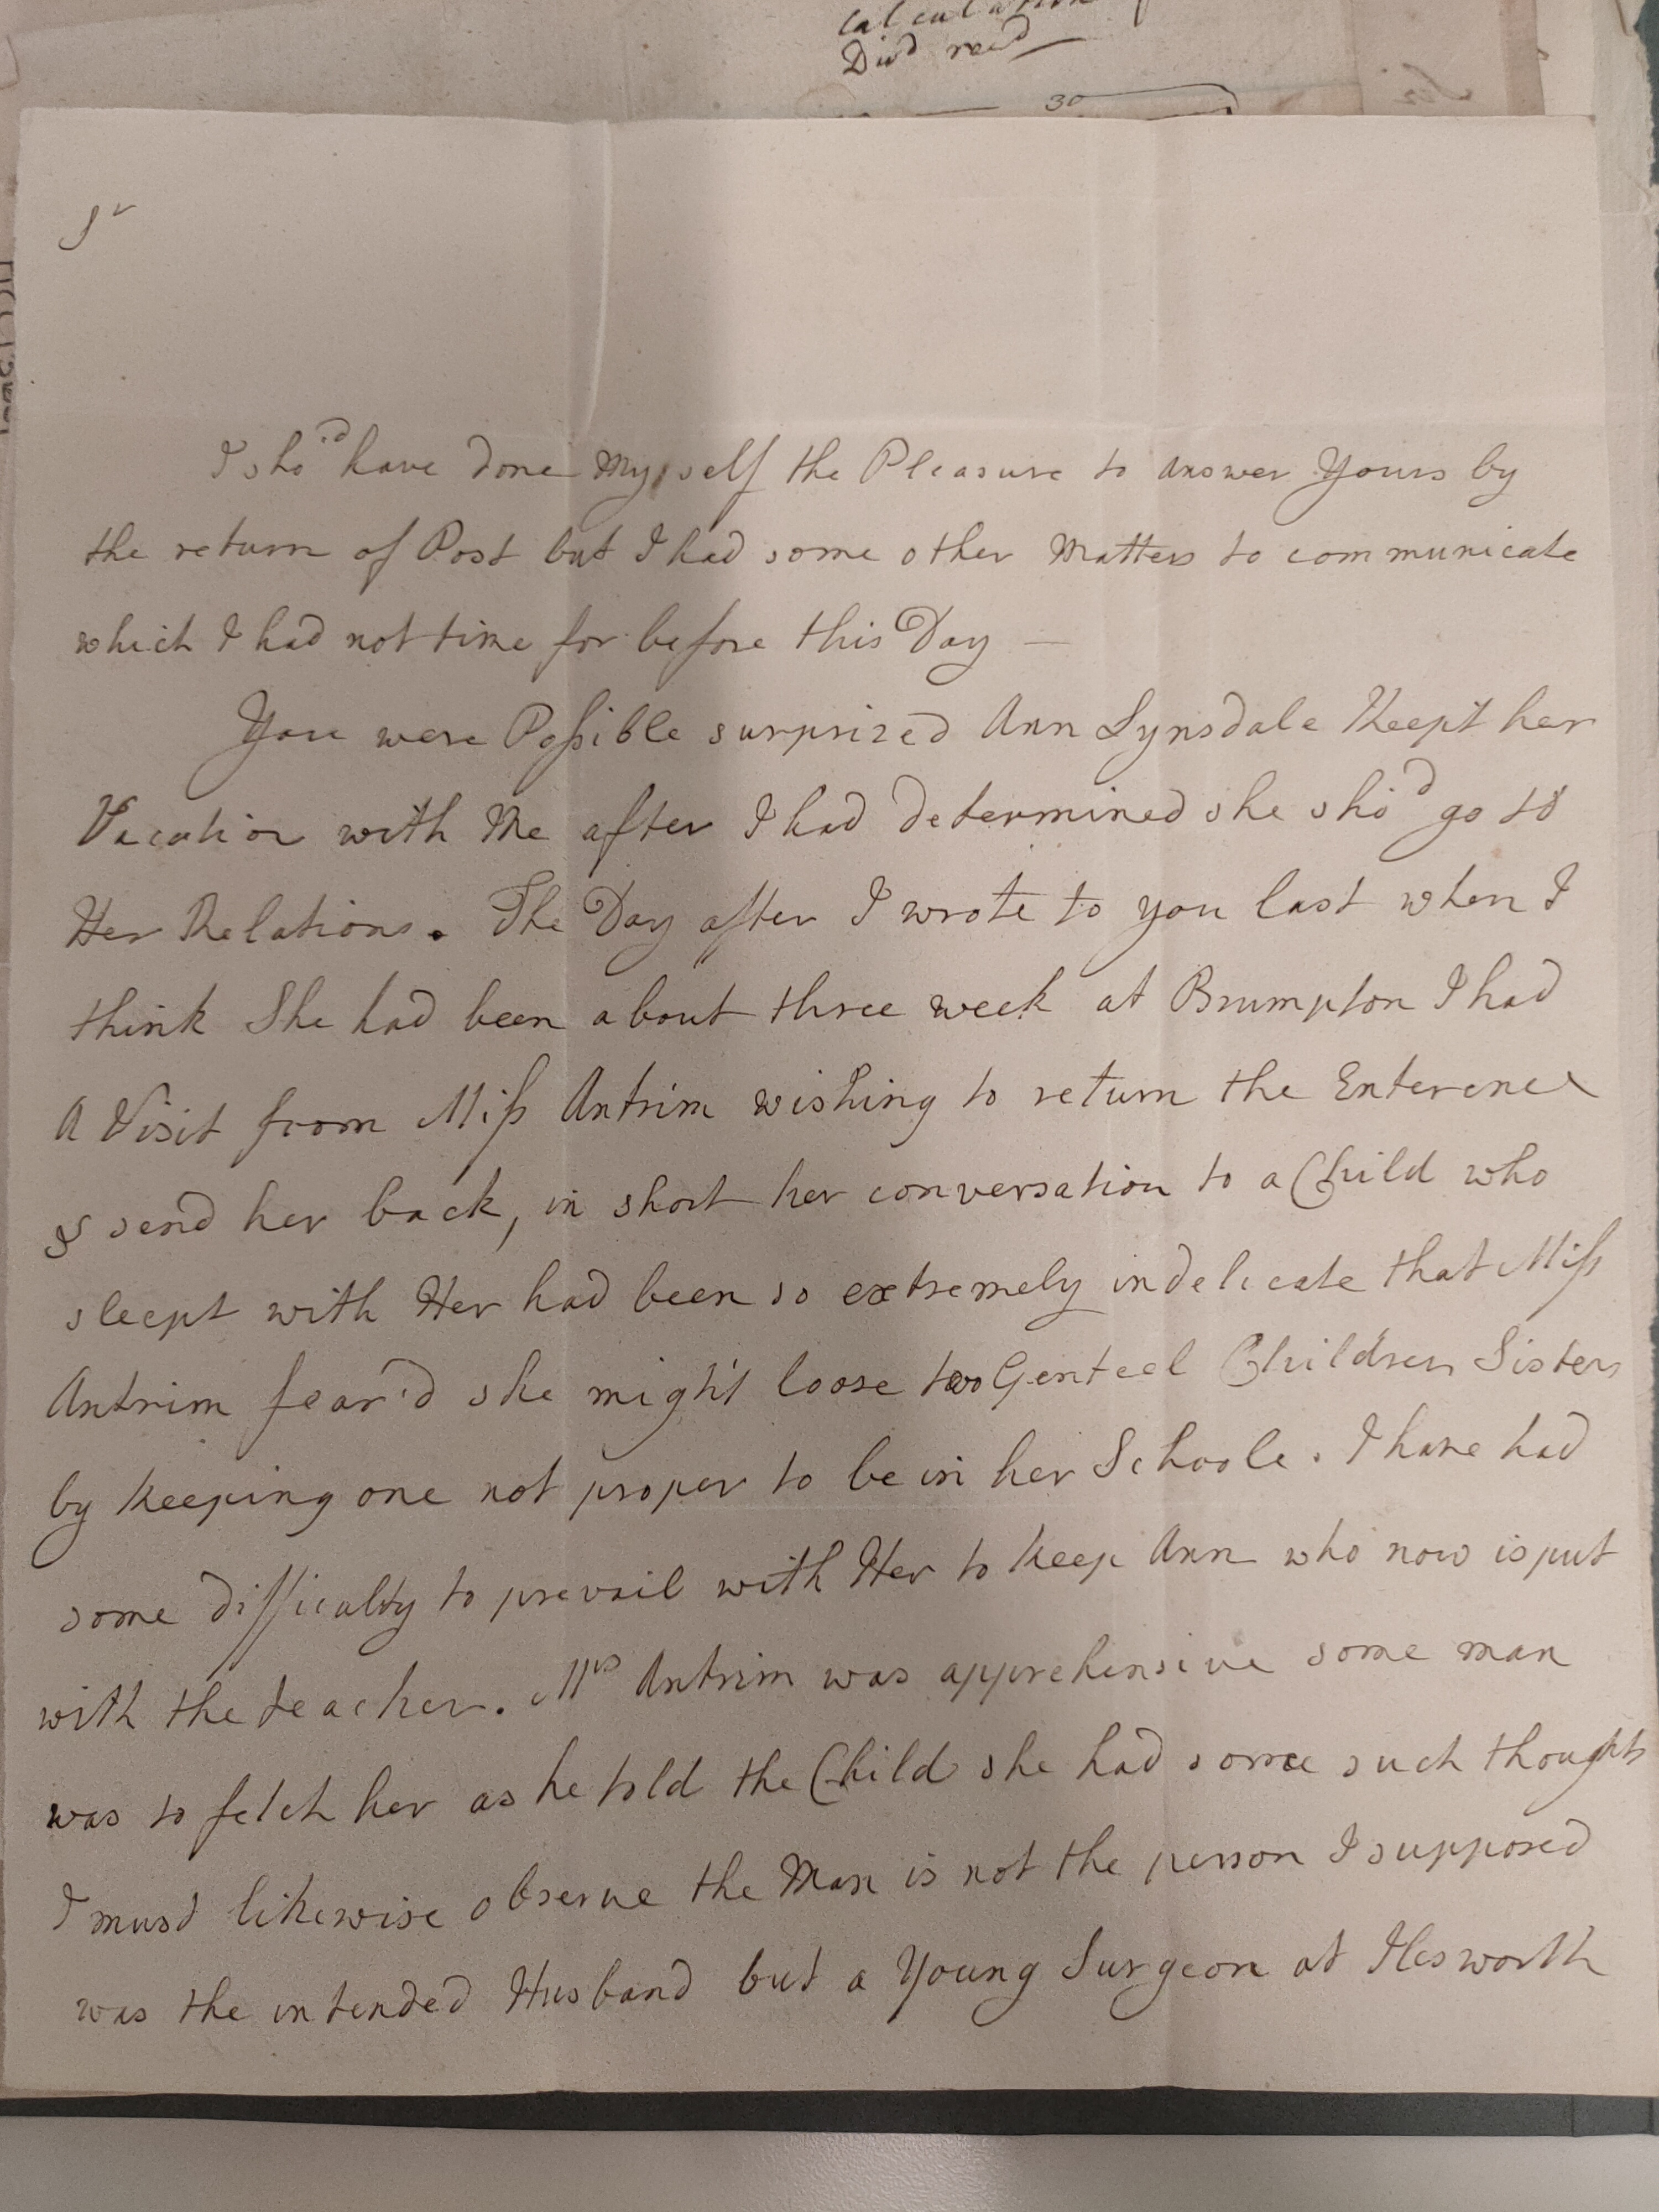 calculation
Divd recd
30
Sr
I shod have done my self the Pleasure to answer Yours by
the return of Post but I had some other Matters to communicate
which I had not time for before this Day —
You were Possible surprized Ann Lynsdale Keept her
Vacation with Me after I had determined she shod go to
Her Relations. The Day after I wrote to you last when I
think She had been about three week at Brumpton I had
A Visit from Miss Antrim wishing to return the Enterence
& send her back, in short her conversation to a Child who
sleept with Her had been so extremely indelicate that Miss
Antrim fear'd she might loose two Genteel Children Sisters
by Keeping one not proper to be in her Schoole. I have had
some difficulty to prevail with Her to Keep Ann who now is put
with the teacher. Mrs Antrim was apprehensive some man
was to fetch her as he told the Child she had some such thoughts
I must likewise observe the Man is not the person I supposed
was the intended Husband but a Young Surgeon at Ilesworth